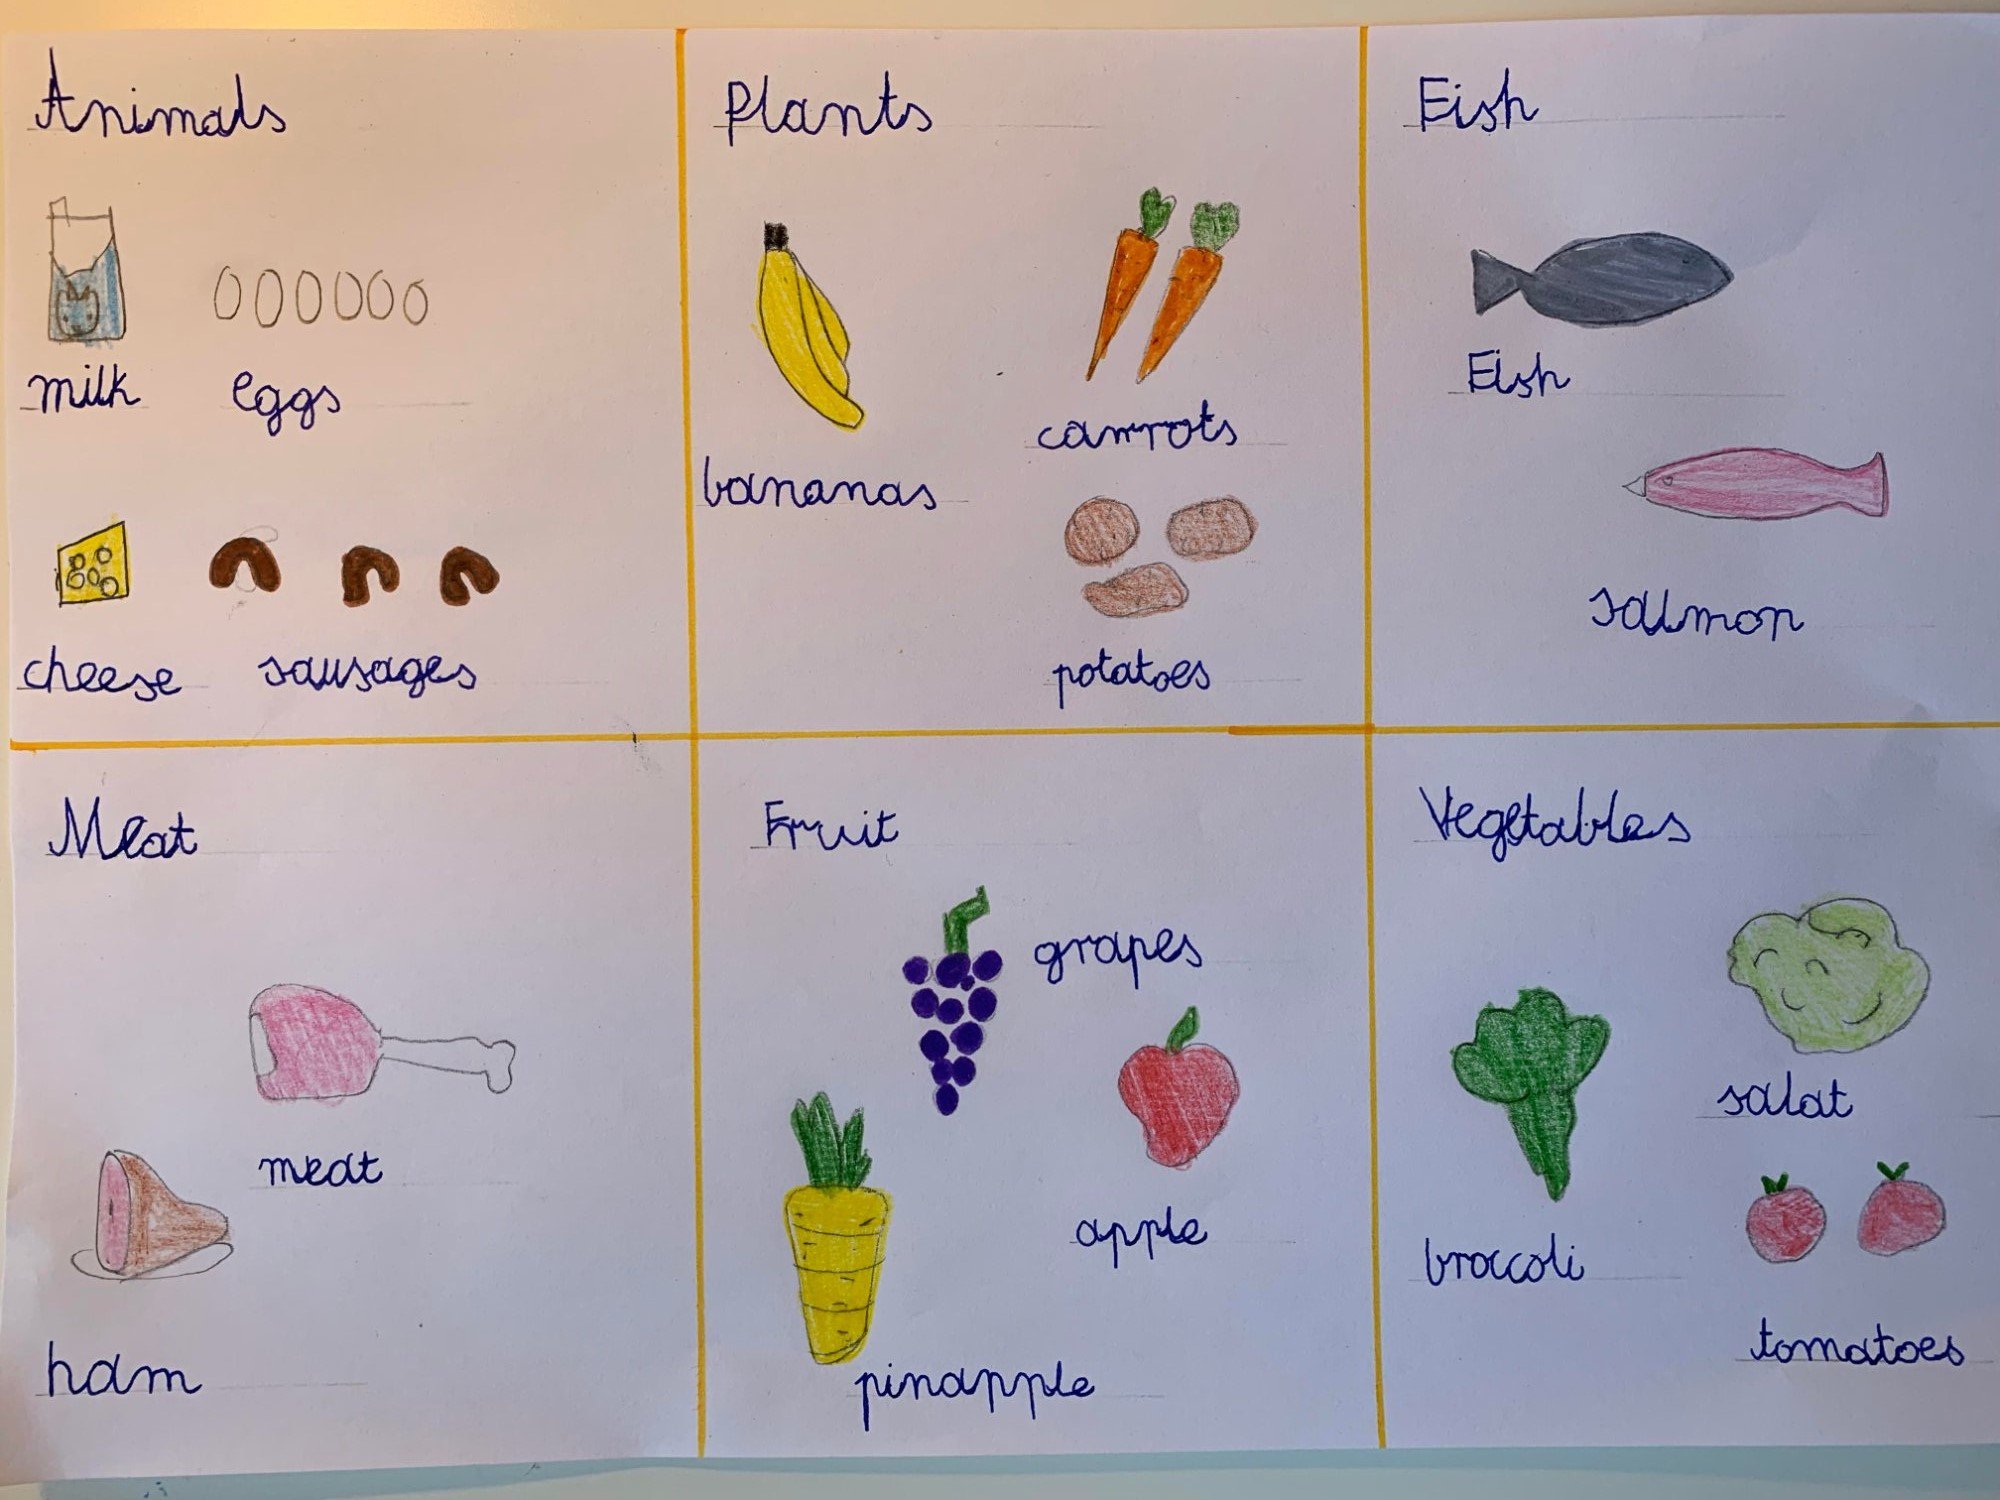 Animals
milk eggs
cheese sausages
Plants
bananas
carrots
potatoes
Fish
Fish
salmon
Meat
meat
ham
Fruit
grapes
apple
pinapple
Vegetables
salat
broccoli
tomatoes